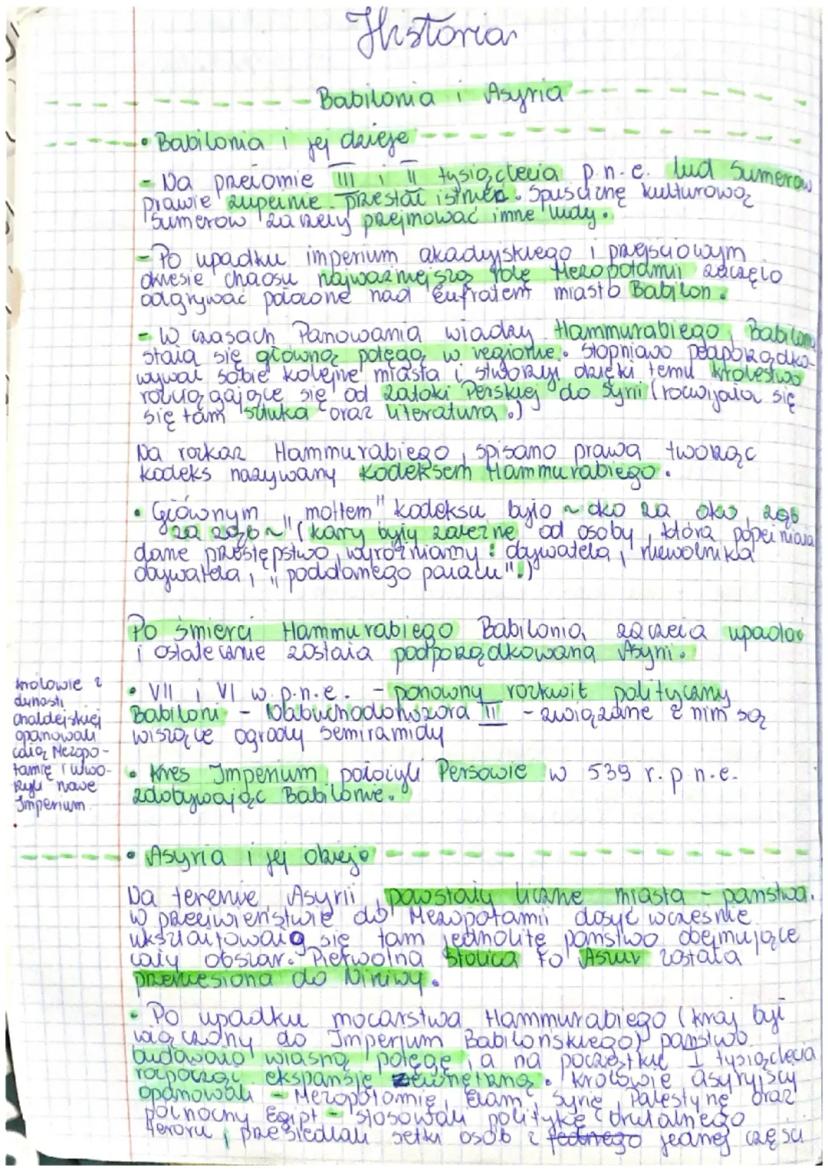 Historia
Babilonia i Asyria
• Babilonia i jej dzieje
- Na przełomie III i II tysiąclecia p.n.e. lud Sumerów
prawie zupełnie przestał istnieć. Spuściznę kulturową
Sumerów zaczęły przejmować inne ludy.
- Po upadku imperium akadyjskiego i przejściowym
okresie chaosu najważniejszą rolę Mezopotamii zaczęło
odgrywać położone nad Eufratem miasto Babilon.
- W czasach Panowania władzy Hammurabiego Babilonia
stała się główną potęgą w regionie. Stopniowo podporządko-
wywał sobie kolejne miasta i stworzył dzięki temu królestwo
rozciągające się od Zatoki Perskiej do Syrii (rozwijała się
się tam sztuka oraz literatura.)
Na rozkaz Hammurabiego, spisano prawa tworząc
kodeks nazywany Kodeksem Hammurabiego.
• Głównym "mottem" kodeksu było ~ oko za oko ząb
za ząb ~ (kary były zależne od osoby, która popełniała
dane przestępstwo, wyróżniamy: obywatela, niewolnika
obywatela, "poddanego pałacu".)
Po śmierci Hammurabiego Babilonia, zaczęła upadać
i ostatecznie została podporządkowana Asyrii.
• VII i VI w p.n.e. - ponowny rozkwit polityczny
Babiloni - Nabuchodonozora III - związane z nim są
wiszące ogrody semiramidy
królowie z
dynastii
chaldejskiej
opanowali
całą Mezopo-
tamię i utwo-
rzyli nowe
Imperium.
• Kres Imperium położyli Persowie w 539 r. p n.e.
zdobywając Babilonie.
• Asyria i jej dzieje
Na terenie Asyrii, powstały liczne miasta - państwa.
W przeciwieństwie do Mezopotamii dosyć wcześnie
ukształtowało się tam jednolite państwo obejmujące
cały obszar. Pierwotna stolica to Aszur została
przeniesiona do Niniwy.
• Po upadku mocarstwa Hammurabiego (kraj był
włączony do Imperium Babilońskiego) państwo
budowało własną potęgę, a na początku I tysiąclecia
rozpoczął ekspansję zewnętrzną. Królowie asyryjscy
opanowali - Mezopotamię, Elam, Syrię, Palestynę oraz
północny Egipt - stosowali politykę brutalnego
terroru, przesiedlali setki osób z jednego jednej części